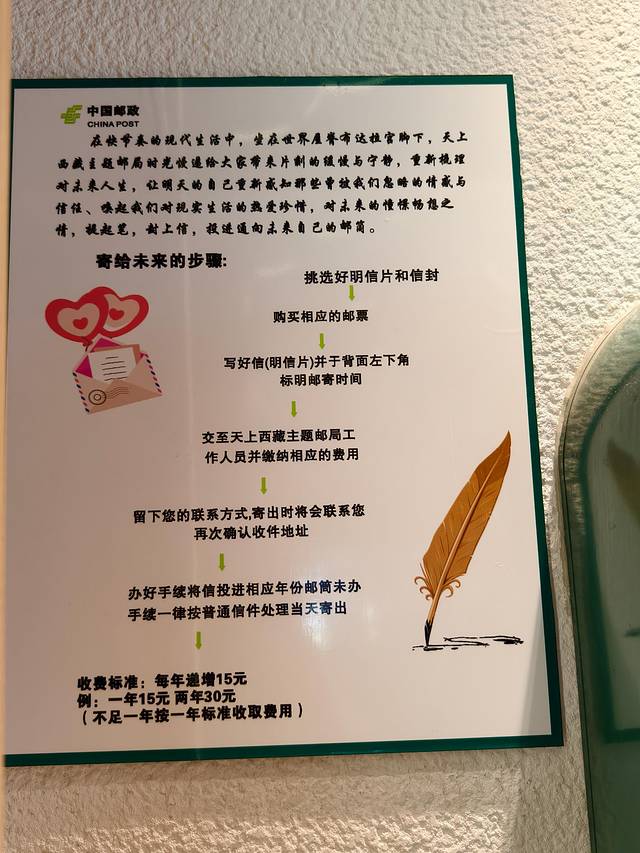 中国邮政
CHINA POST
在快节奏的现代生活中，坐在世界屋脊布达拉宫脚下，天上
西藏主题邮局时光慢递给大家带来片刻的缓慢与宁静，重新梳理
对未来人生，让明天的自己重新感知那些曾被我们忽略的情感与
信任、唤起我们对现实生活的热爱珍惜，对未来的憧憬畅想之
情，提起笔，封上信，投进通向未来自己的邮筒。
寄给未来的步骤:
挑选好明信片和信封
购买相应的邮票
写好信(明信片)并于背面左下角
标明邮寄时间
交至天上西藏主题邮局工
作人员并缴纳相应的费用
留下您的联系方式,寄出时将会联系您
再次确认收件地址
办好手续将信投进相应年份邮筒未办
手续一律按普通信件处理当天寄出
收费标准：每年递增15元
例：一年15元 两年30元
（不足一年按一年标准收取费用）